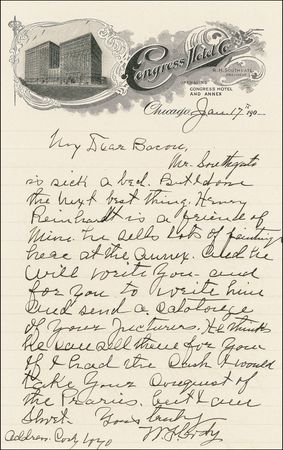 Congress Hotel Co
R. H. SOUTHGATE
PRESIDENT
OPERATING
CONGRESS HOTEL
AND ANNEX
Chicago, Jan 17th 190
My Dear Bacon,
Mr. Southgate
is sick a bed. But I done
the next best thing. Henry
Reinhardt is a friend of
Mine. he sells lots of paintings
hear at the annex. and he
will write you and
for you to write him
and send a catalogue
of your pictures. He thinks
he can sell them for you
if I had the cash I would
take your conquest of
the Prairie. but I am
short. Yours truly
W. F. Cody
Address. Cody Wyo